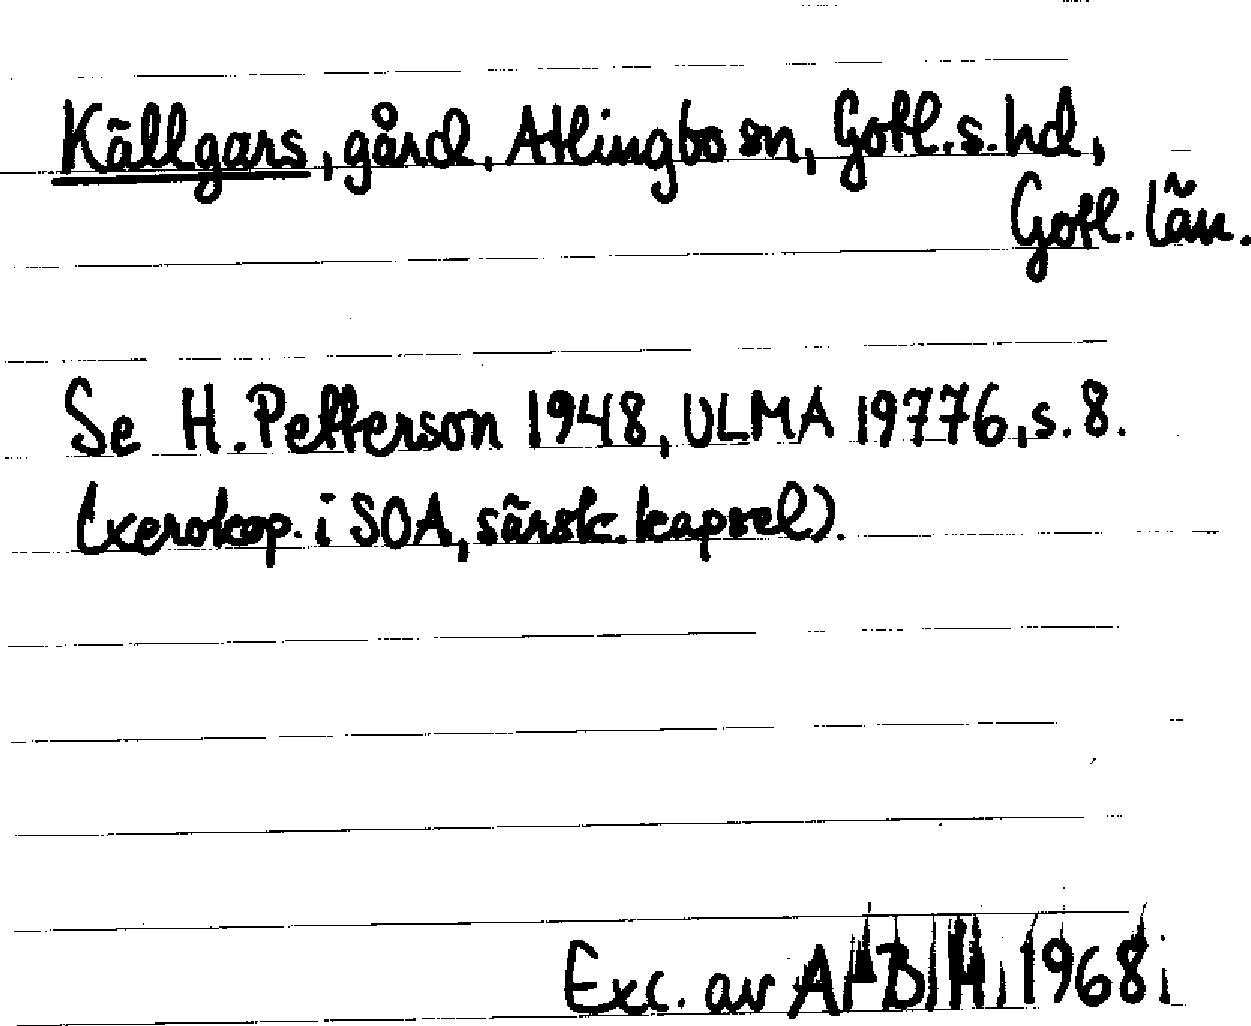 Källgars, gård, Atlingbo sn, Gotl. s. hd,
Gotl. län.
Se H. Petterson 1948, ULMA 19776, s. 8.
(xerokop. i SOA, särsk. kapsel).
Exc. av 1968